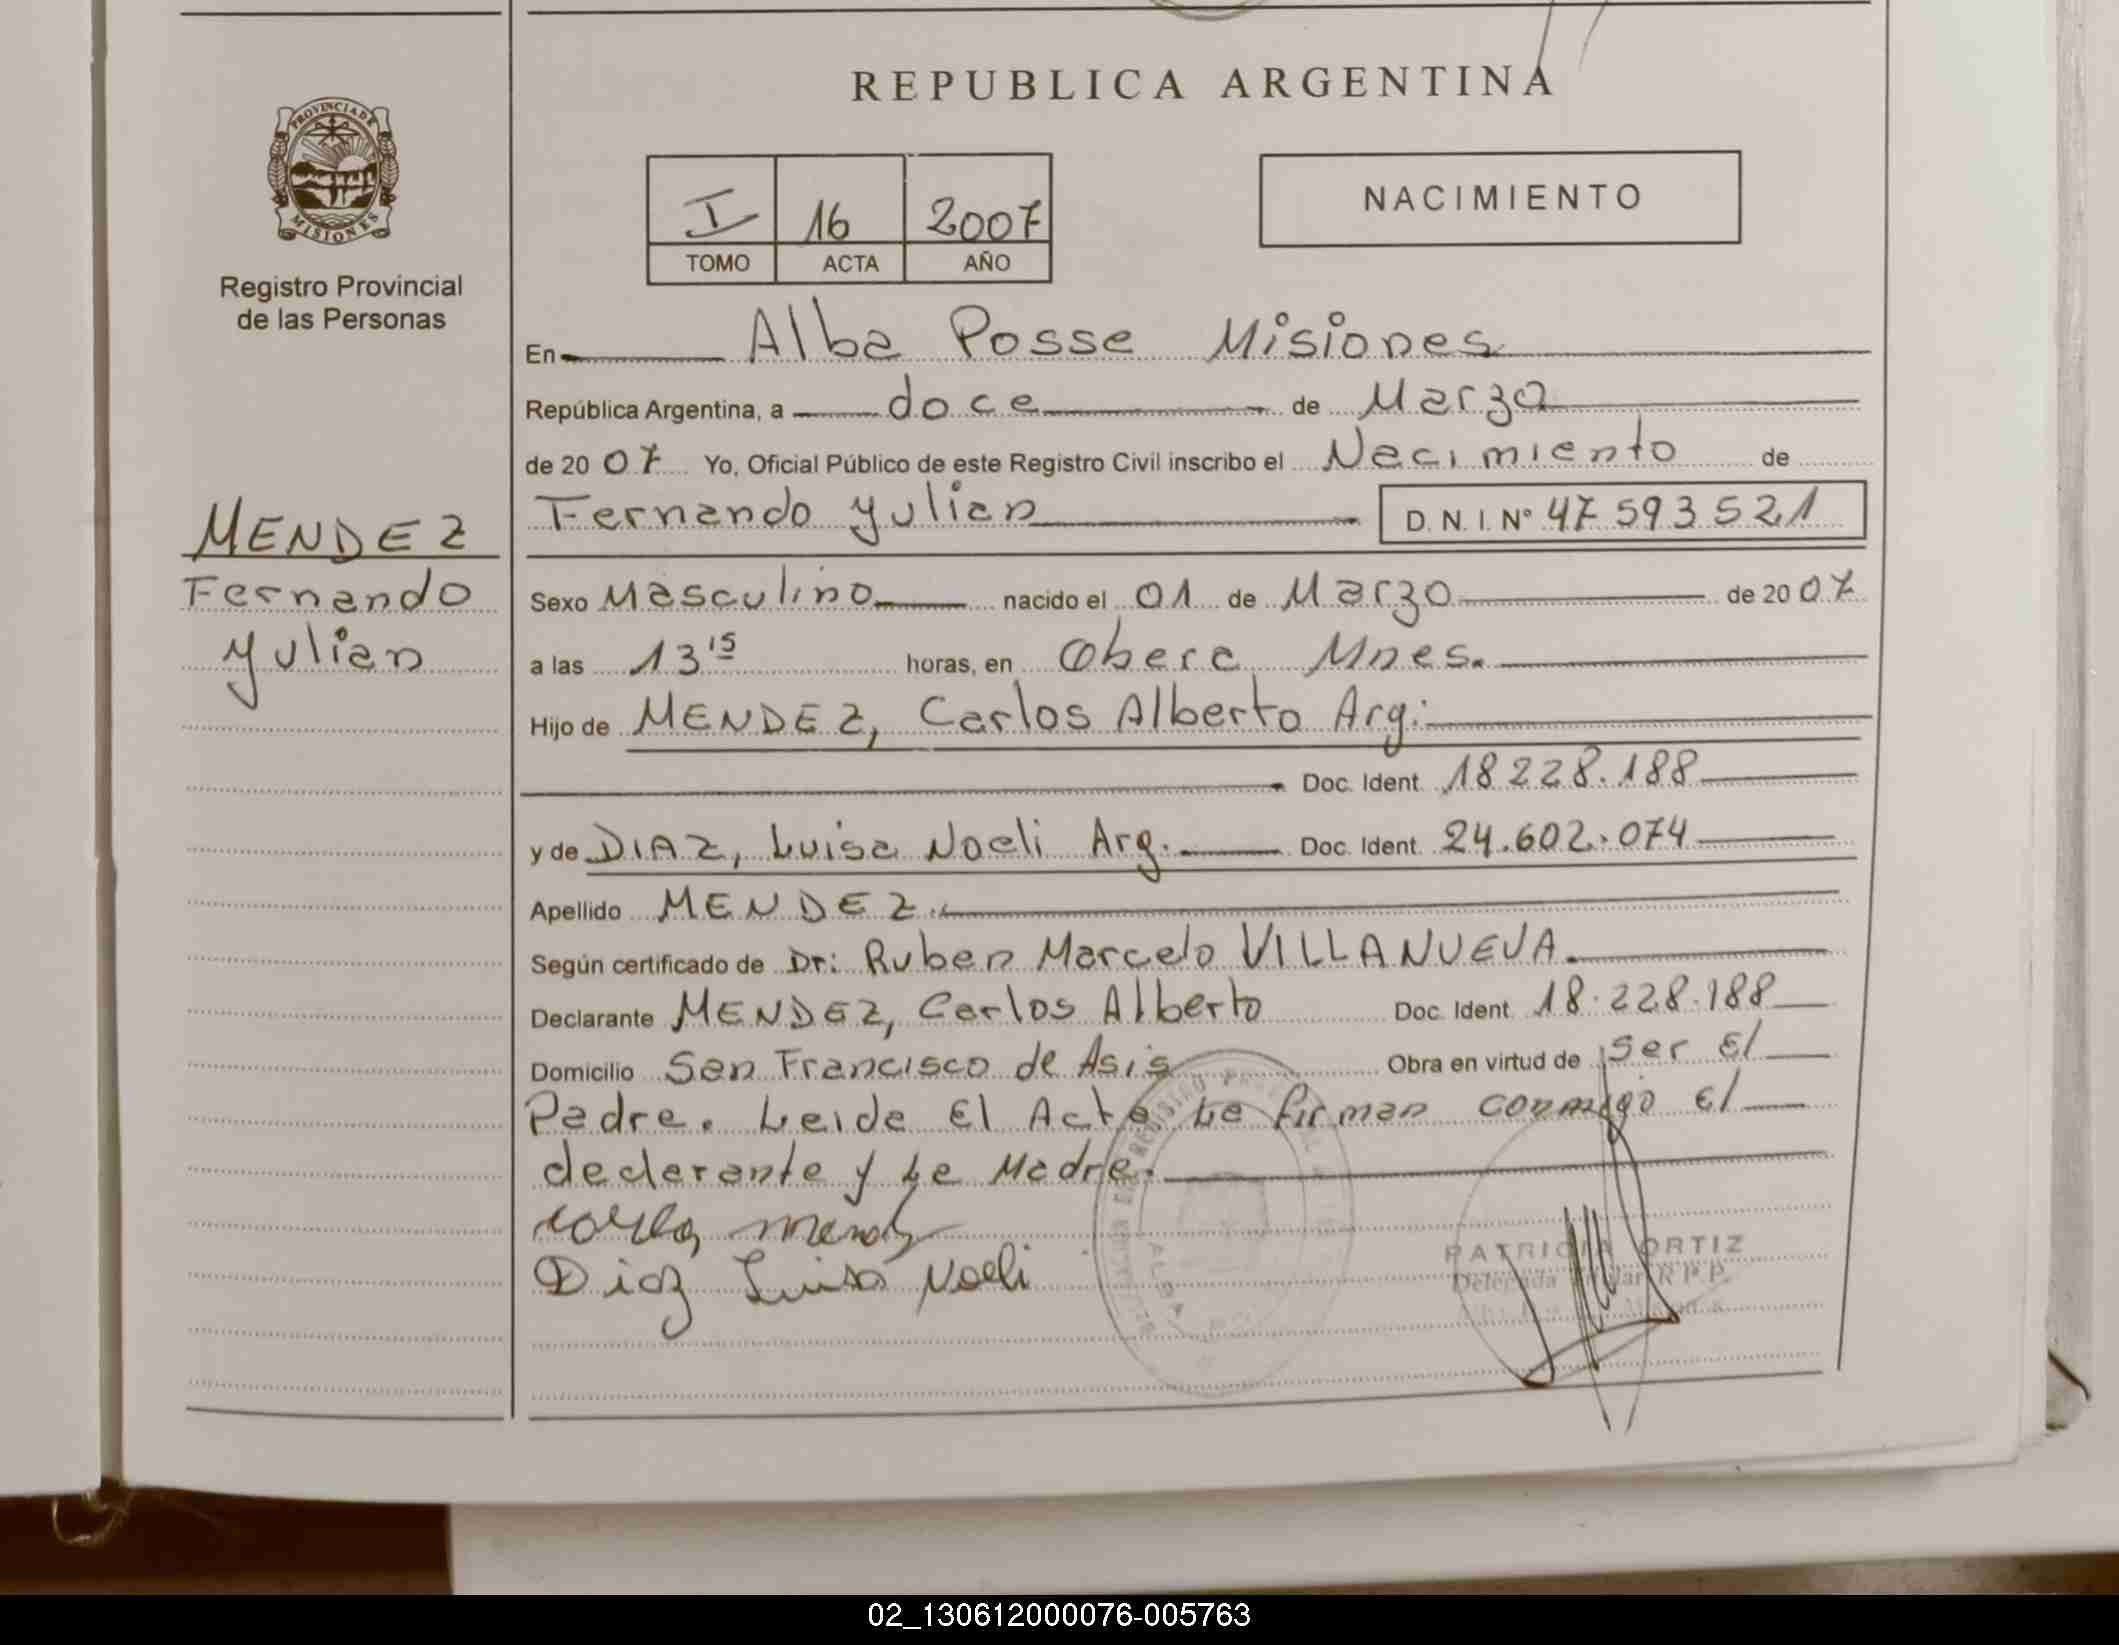 REPUBLICA ARGENTINA
PROVINCIA DE MISIONES
Registro Provincial
de las Personas
I 16 2007
TOMO ACTA AÑO
NACIMIENTO
En Alba Posse Misiones
República Argentina, a doce de Marzo
de 2007 Yo, Oficial Público de este Registro Civil inscribo el Nacimiento de
Fernando Yulian D. N. I. N° 47 593 521
MENDEZ
Fernando
Yulian
Sexo Masculino nacido el 01 de Marzo de 2007
a las 13 15 horas, en Obera Mnes.
Hijo de MENDEZ, Carlos Alberto Arg.
Doc. Ident. 18.228.188
y de DIAZ, Luisa Noeli Arg. Doc. Ident. 24.602.074
Apellido MENDEZ.
Según certificado de Dr: Ruben Marcelo VILLANUEVA.
Declarante MENDEZ, Carlos Alberto Doc. Ident. 18.228.188
Domicilio San Francisco de Asis Obra en virtud de ser El
Padre. Leida El Acta La firman conmigo El
declarante y La Madre.
Diaz Luisa Noeli
PATRICIA ORTIZ
Delegada Titular R.P.P.
02_130612000076-005763